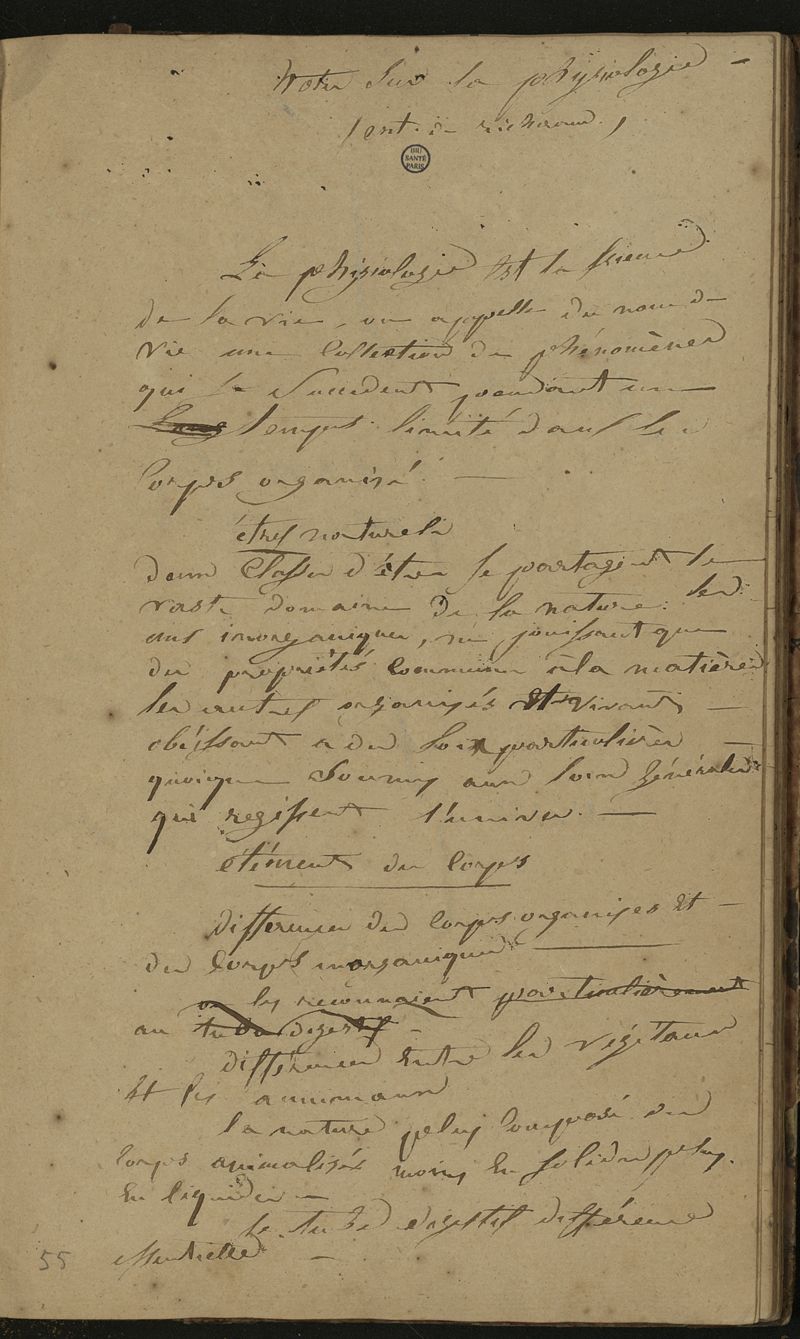 Notes Sur la physiologie -
(ext. de richerand)
BIU
SANTÉ
PARIS
La phisiologie est la Science
de la vie, on appelle du nom de
vie une Collection de phénomènes
qui se succedent pendant un
temps limité dans les
corps organisé. —
êtres naturels
deux Classes d'êtres se partagent le
vaste domaine de la nature: les
uns inorganiques, ne jouissant que
des propriétés commune à la matière
les autres organisés et vivants —
obéissant a des loix particulières —
quoique Soumis aux loix générales
qui regissent l'univers. —
élément des Corps
differences des Corps organises et —
des Corps inorganiques —
on les reconnaient particulièrement
au tube digestif -
différences entre les végétaux
et les animaux
la nature plus composé des
corps animalisés moins en solides plus
en liquides —
le tube digestif différence
essentielle —
55